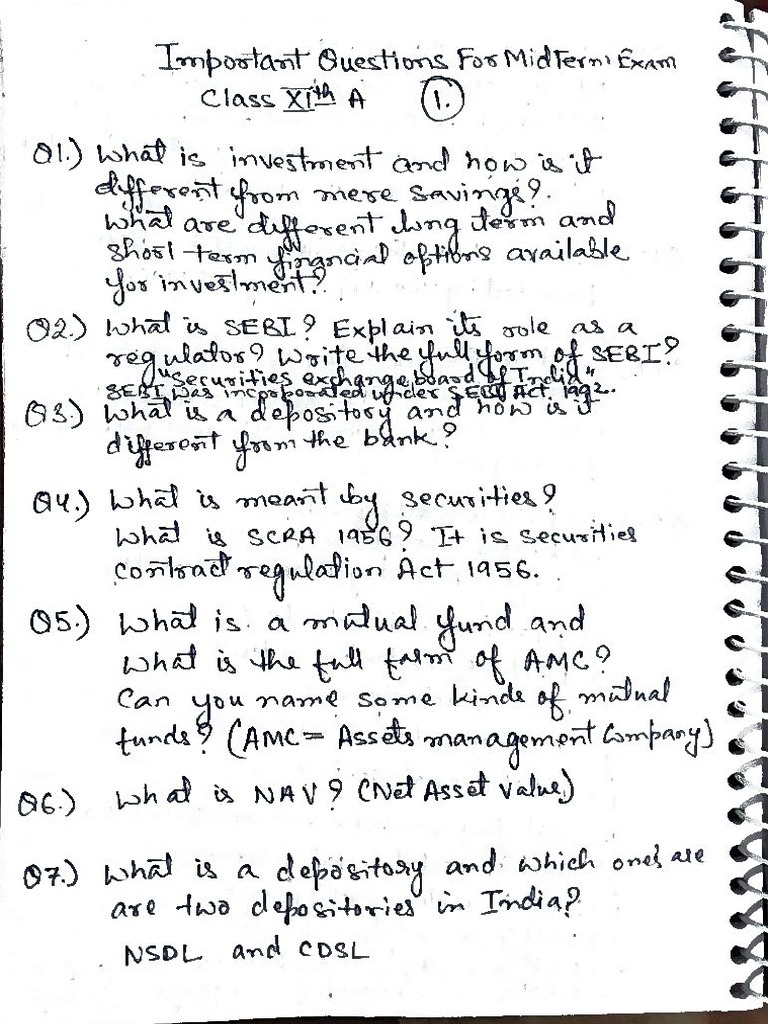 Important Questions For MidTerm Exam
Class XIth A 1.
Q1.) What is investment and how is it
different from mere savings?.
What are different long term and
short term financial options available
for investment?
Q2.) What is SEBI? Explain its role as a
regulator? Write the full form of SEBI?
"Securities exchange board of India"
SEBI was incorporated under SEBI Act. 1992.
Q3.) What is a depository and how is it
different from the bank?
Q4.) What is meant by securities?
What is SCRA 1956? It is securities
contract regulation Act 1956.
Q5.) What is a mutual fund and
what is the full farm of AMC?
Can you name some kinds of mutual
funds? (AMC = Assets management Company)
Q6.) What is NAV? (Net Asset Value)
Q7.) What is a depository and which ones are
are two depositories in India?
NSDL and CDSL